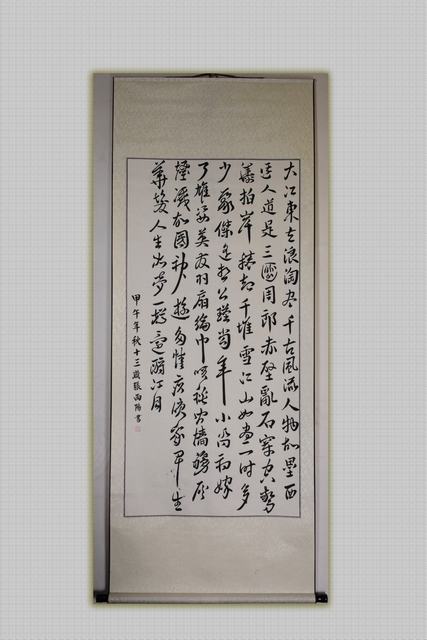 大江東去浪淘尽千古風流人物故壘西
邊人道是三國周郎赤壁亂石穿空驚
濤拍岸捲起千堆雪江山如畫一時多
少豪傑遙想公瑾當年小喬初嫁
了雄姿英發羽扇綸巾笑談間檣艣灰
煙滅故國神遊多情應笑我早生
華髮人生如夢一樽還酹江月
甲午年秋十三歲張雨陽書